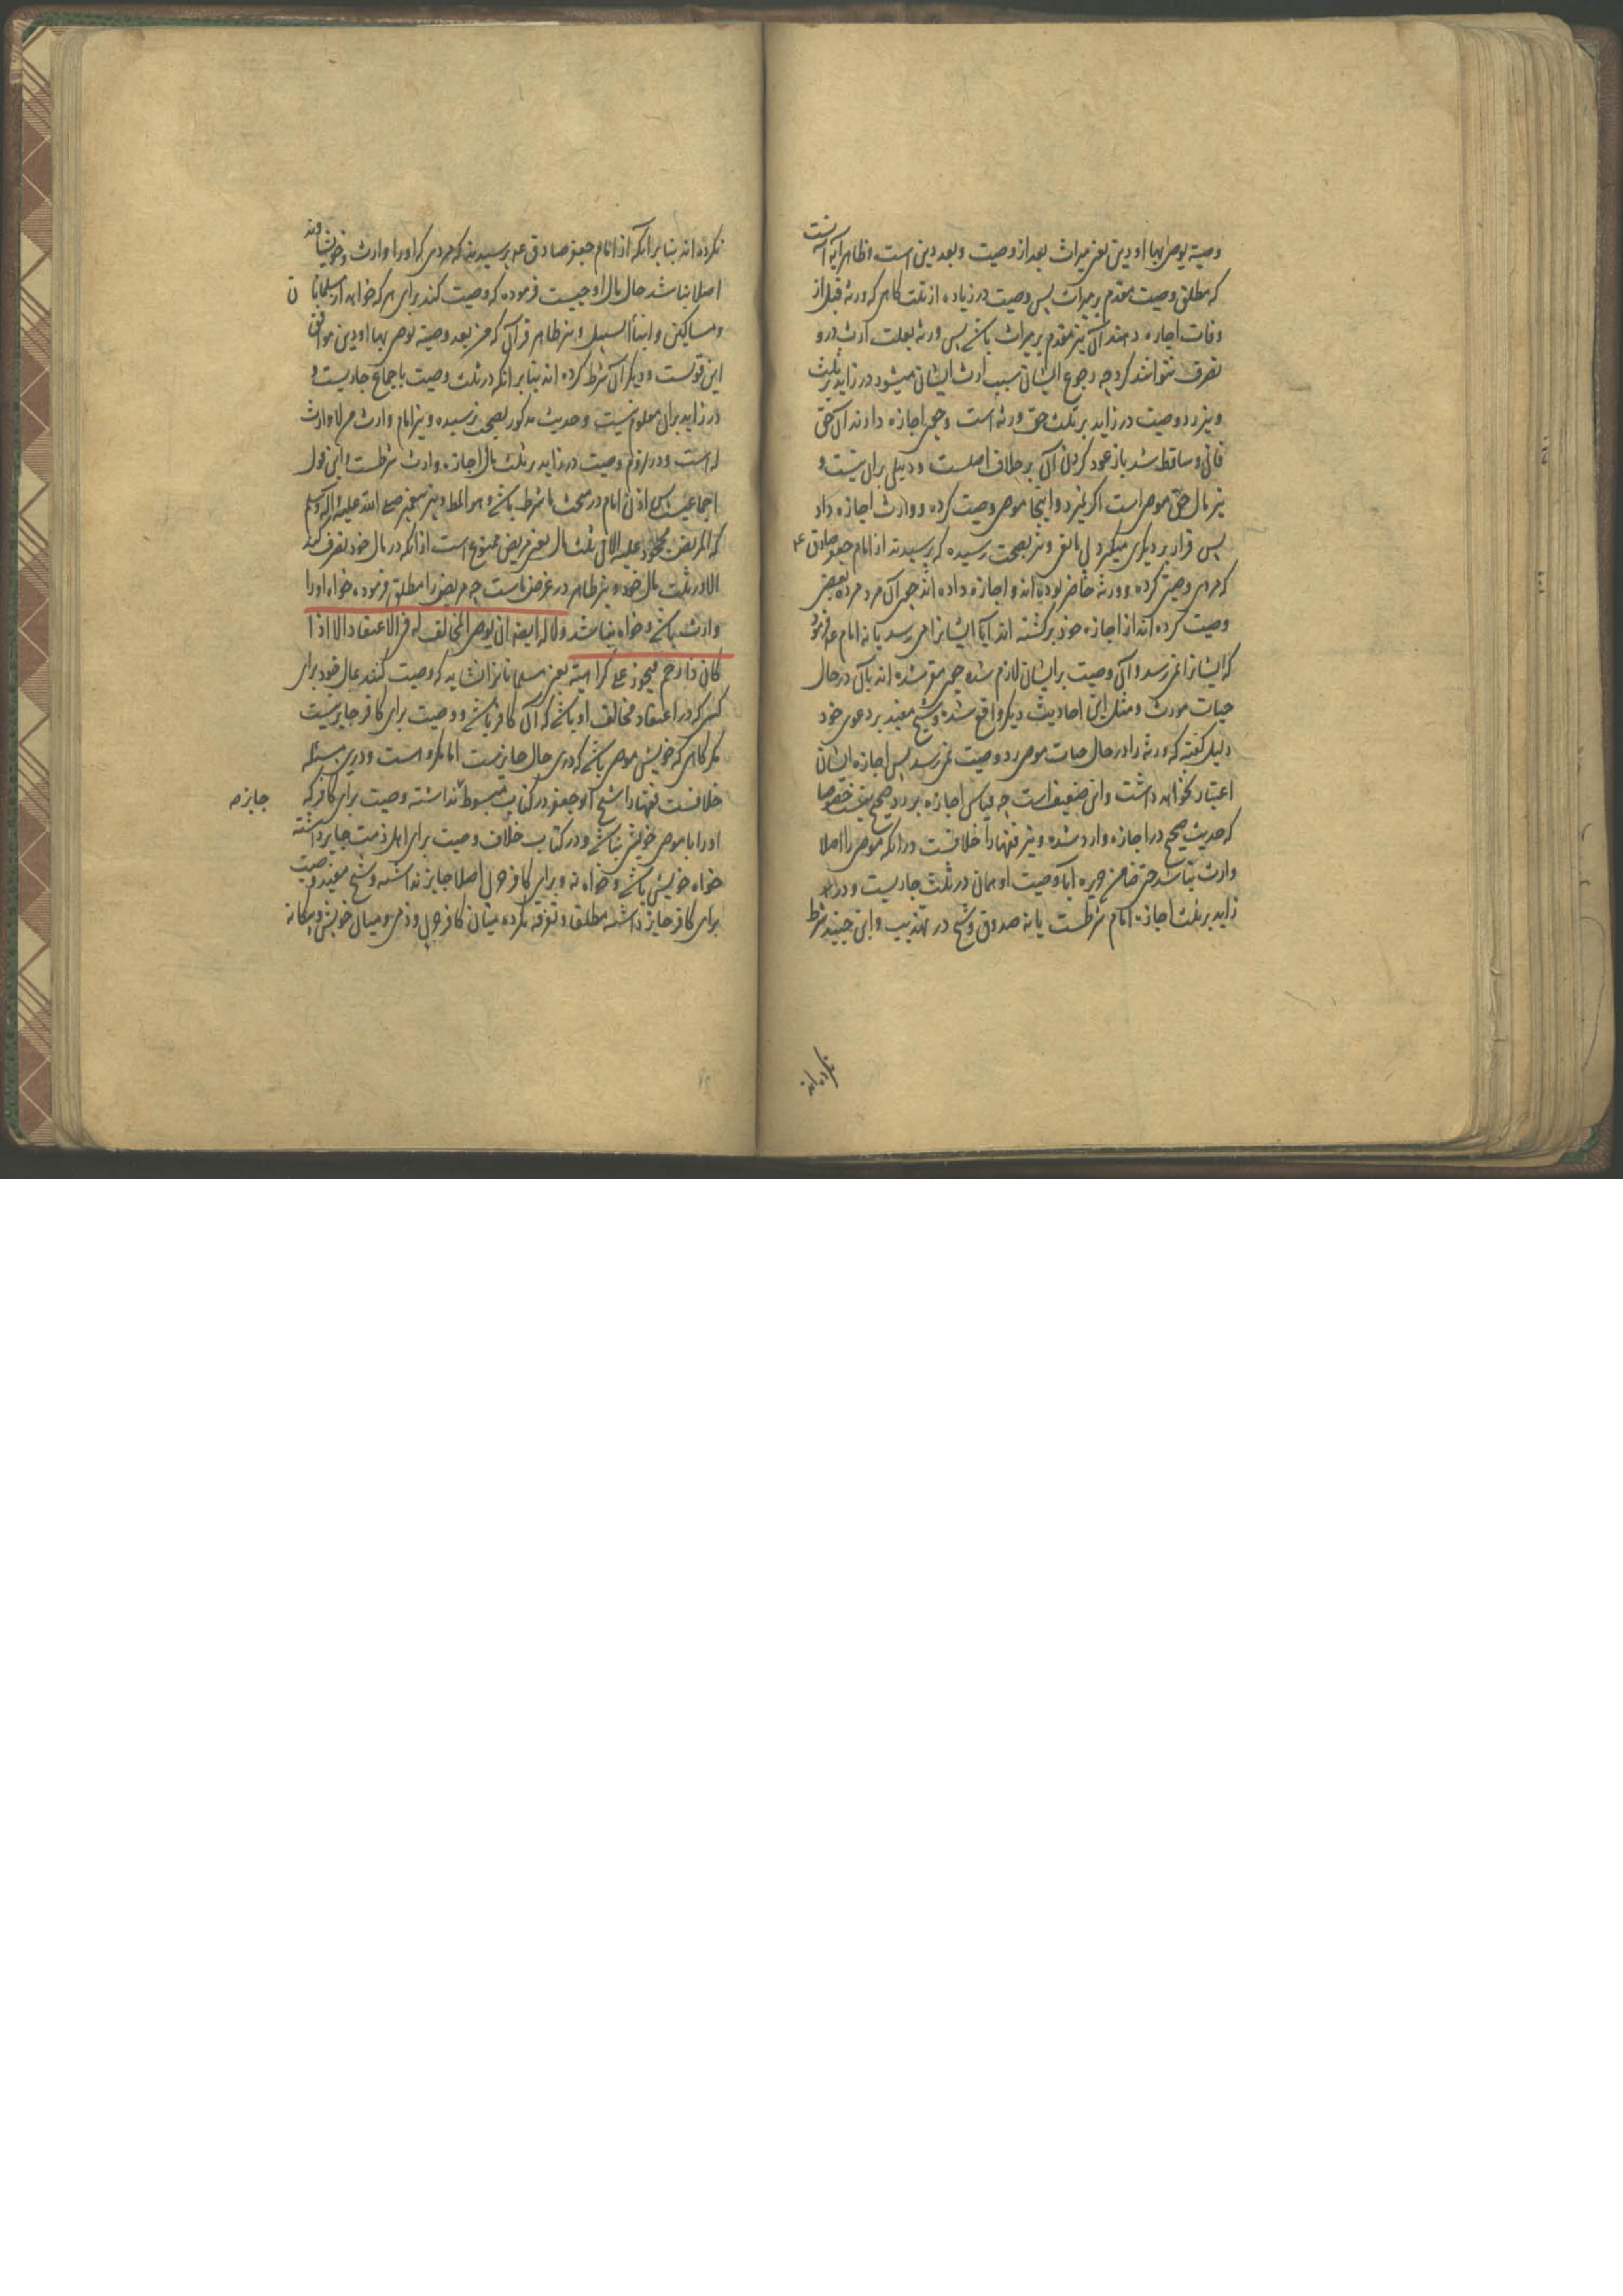 وصیة یوصی بها او دین یعنی میراث بعد از وصیت و بعد دین است و ظاهر آیه آنست
که مطلق وصیت مقدم بر میراث پس وصیت در زیاده از ثلث گاهی که ورثه قبل از
وفات اجازه دهند آن نیز مقدم بر میراث باشد پس ورثه بعلت ارث درو
تصرف نتوانند کرد چه رجوع ایشان سبب ارث ایشان میشود در زاید بر ثلث
و نیز رد وصیت در زاید بر ثلث حق ورثه است و چون اجازه دادند آن حق
فانی و ساقط شد باز عود کردن آن بر خلاف اصلست و دلیلی بران نیست و
نیز مال حق موصی است اگر نمیرد و اینجا موصی وصیت کرده و وارث اجازه داد
پس قرار بر دیگری میگیرد و نیز بصحت رسیده که پرسیدند از امام جعفر صادق ع
که مردی وصیتی کرده و ورثه حاضر بوده اند و اجازه داده اند چون آن مرد مرده بعضی
وصیت کرده اند از اجازه خود برگشته اند آیا ایشانرا می رسد یا نه امام ع فرمود
که ایشانرا نمی رسد و آن وصیت بر ایشان لازم شده چون مقر شده اند بآن در حال
حیات مورث و مثل این احادیث دیگر واقع شده و شیخ مفید بر دعوی خود
دلیل گفته که ورثه را در حال حیات موصی رد وصیت نمی رسد پس اجازه ایشان
اعتبار نخواهد داشت و این ضعیف است چه قیاس اجازه بر رد صحیح نیست خصوصا
که حدیث صحیح در اجازه وارد شده و نیز فقها را خلافست در انکه موصی را اصلا
وارث نباشد حتی ضامن جریره آیا وصیت او همان در ثلث جاریست و در
زاید بر ثلث اجازه امام شرطست یا نه صدوق و شیخ در تهذیب و ابن جنید شرط
نکرده اند
نکرده اند بنا بر انکه از امام جعفر صادق ع پرسیدند که مردی که او را وارث و خویشاوند
اصلا نباشد حال مال او چیست فرموده که وصیت کند برای هر که خواهد از مسلمانان
و مساکین و ابناء السبیل و نیز ظاهر قرآن که من بعد وصیة یوصی بها او دین موافق
این قولست و دیگران شرط کرده اند بنا بر انکه در ثلث وصیت باجماع جاریست و
در زاید بران معلوم نیست و حدیث مذکور بصحت نرسیده و نیز امام وارث من لا وارث
له است و در لزوم وصیت در زاید بر ثلث مال اجازه وارث شرطست و این قول
اجماعیست پس اذن امام در مبحث ما شرط باشد و هو المط و نیز پیغمبر صلی الله علیه و اله و سلم
که المریض محجور علیه الا فی ثلث مال یعنی مریض ممنوع است از انکه در مال خود تصرف کند
الا در ثلث مال خود و نیز ظاهر در غرض ماست چه مریض را مطلق فرموده خواه او را
وارث باشد و خواه نباشد و لا له ایضه ان یوصی لمخالف له فی الاعتقاد الا اذا
کان ذا رحم فیجوز علی کراهیته یعنی مسلمانانرا نشاید که وصیت کنند بمال خود برای
کسی که در اعتقاد مخالف او باشد که آن کافر باشد و وصیت برای کافر جایز نیست
مگر گاهی که خویش موصی باشد که درین حال جایزست اما مکروه است و درین مسئله
خلافست فقها را شیخ ابو جعفر در کتاب مبسوط نداشته وصیت برای کافر که
جایز
او را با موصی خویشی نباشد و در کتاب خلاف وصیت برای اهل ذمت جایز داشته
خواه خویش باشد و خواه نه و برای کافر حربی اصلا جایز نداشته و شیخ مفید وصیت
برای کافر جایز داشته مطلق و تفرقه نکرده میان کافر حربی و ذمی و میان خویش و بیگانه